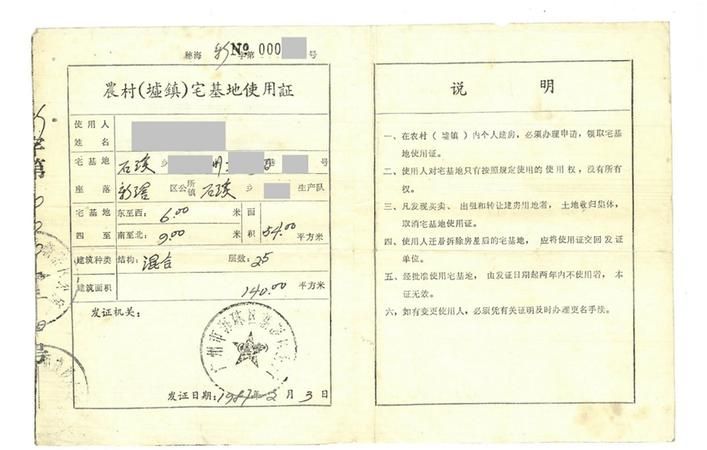 穗海 新 No 000 号
農村(墟鎮)宅基地使用証
使用人
姓名
宅基地 石溪 乡
座落 新滘 区公所 镇 石溪 乡 生产队
宅基地 东至西: 6.00 米 面
四至 南至北: 9.00 米 积 54.00 平方米
建筑种类 结构: 混合 层数: 2.5
建筑面积 140.00 平方米
发证机关:
广州市海珠区
发证日期: 1987年2月3日
说明
一、在农村(墟镇)内个人建房,必须办理申请,领取宅基
地使用证。
二、使用人对宅基地只有按照规定使用的使用权,没有所有
权。
三、凡发现买卖、出租和转让建房用地者,土地收归集体,
取消宅基地使用证。
四、使用人迁居拆除房屋后的宅基地,应将使用证交回发证
单位。
五、经批准使用宅基地,由发证日期起两年内不使用者,本
证无效。
六、如有变更使用人,必须凭有关证明及时办理更名手续。